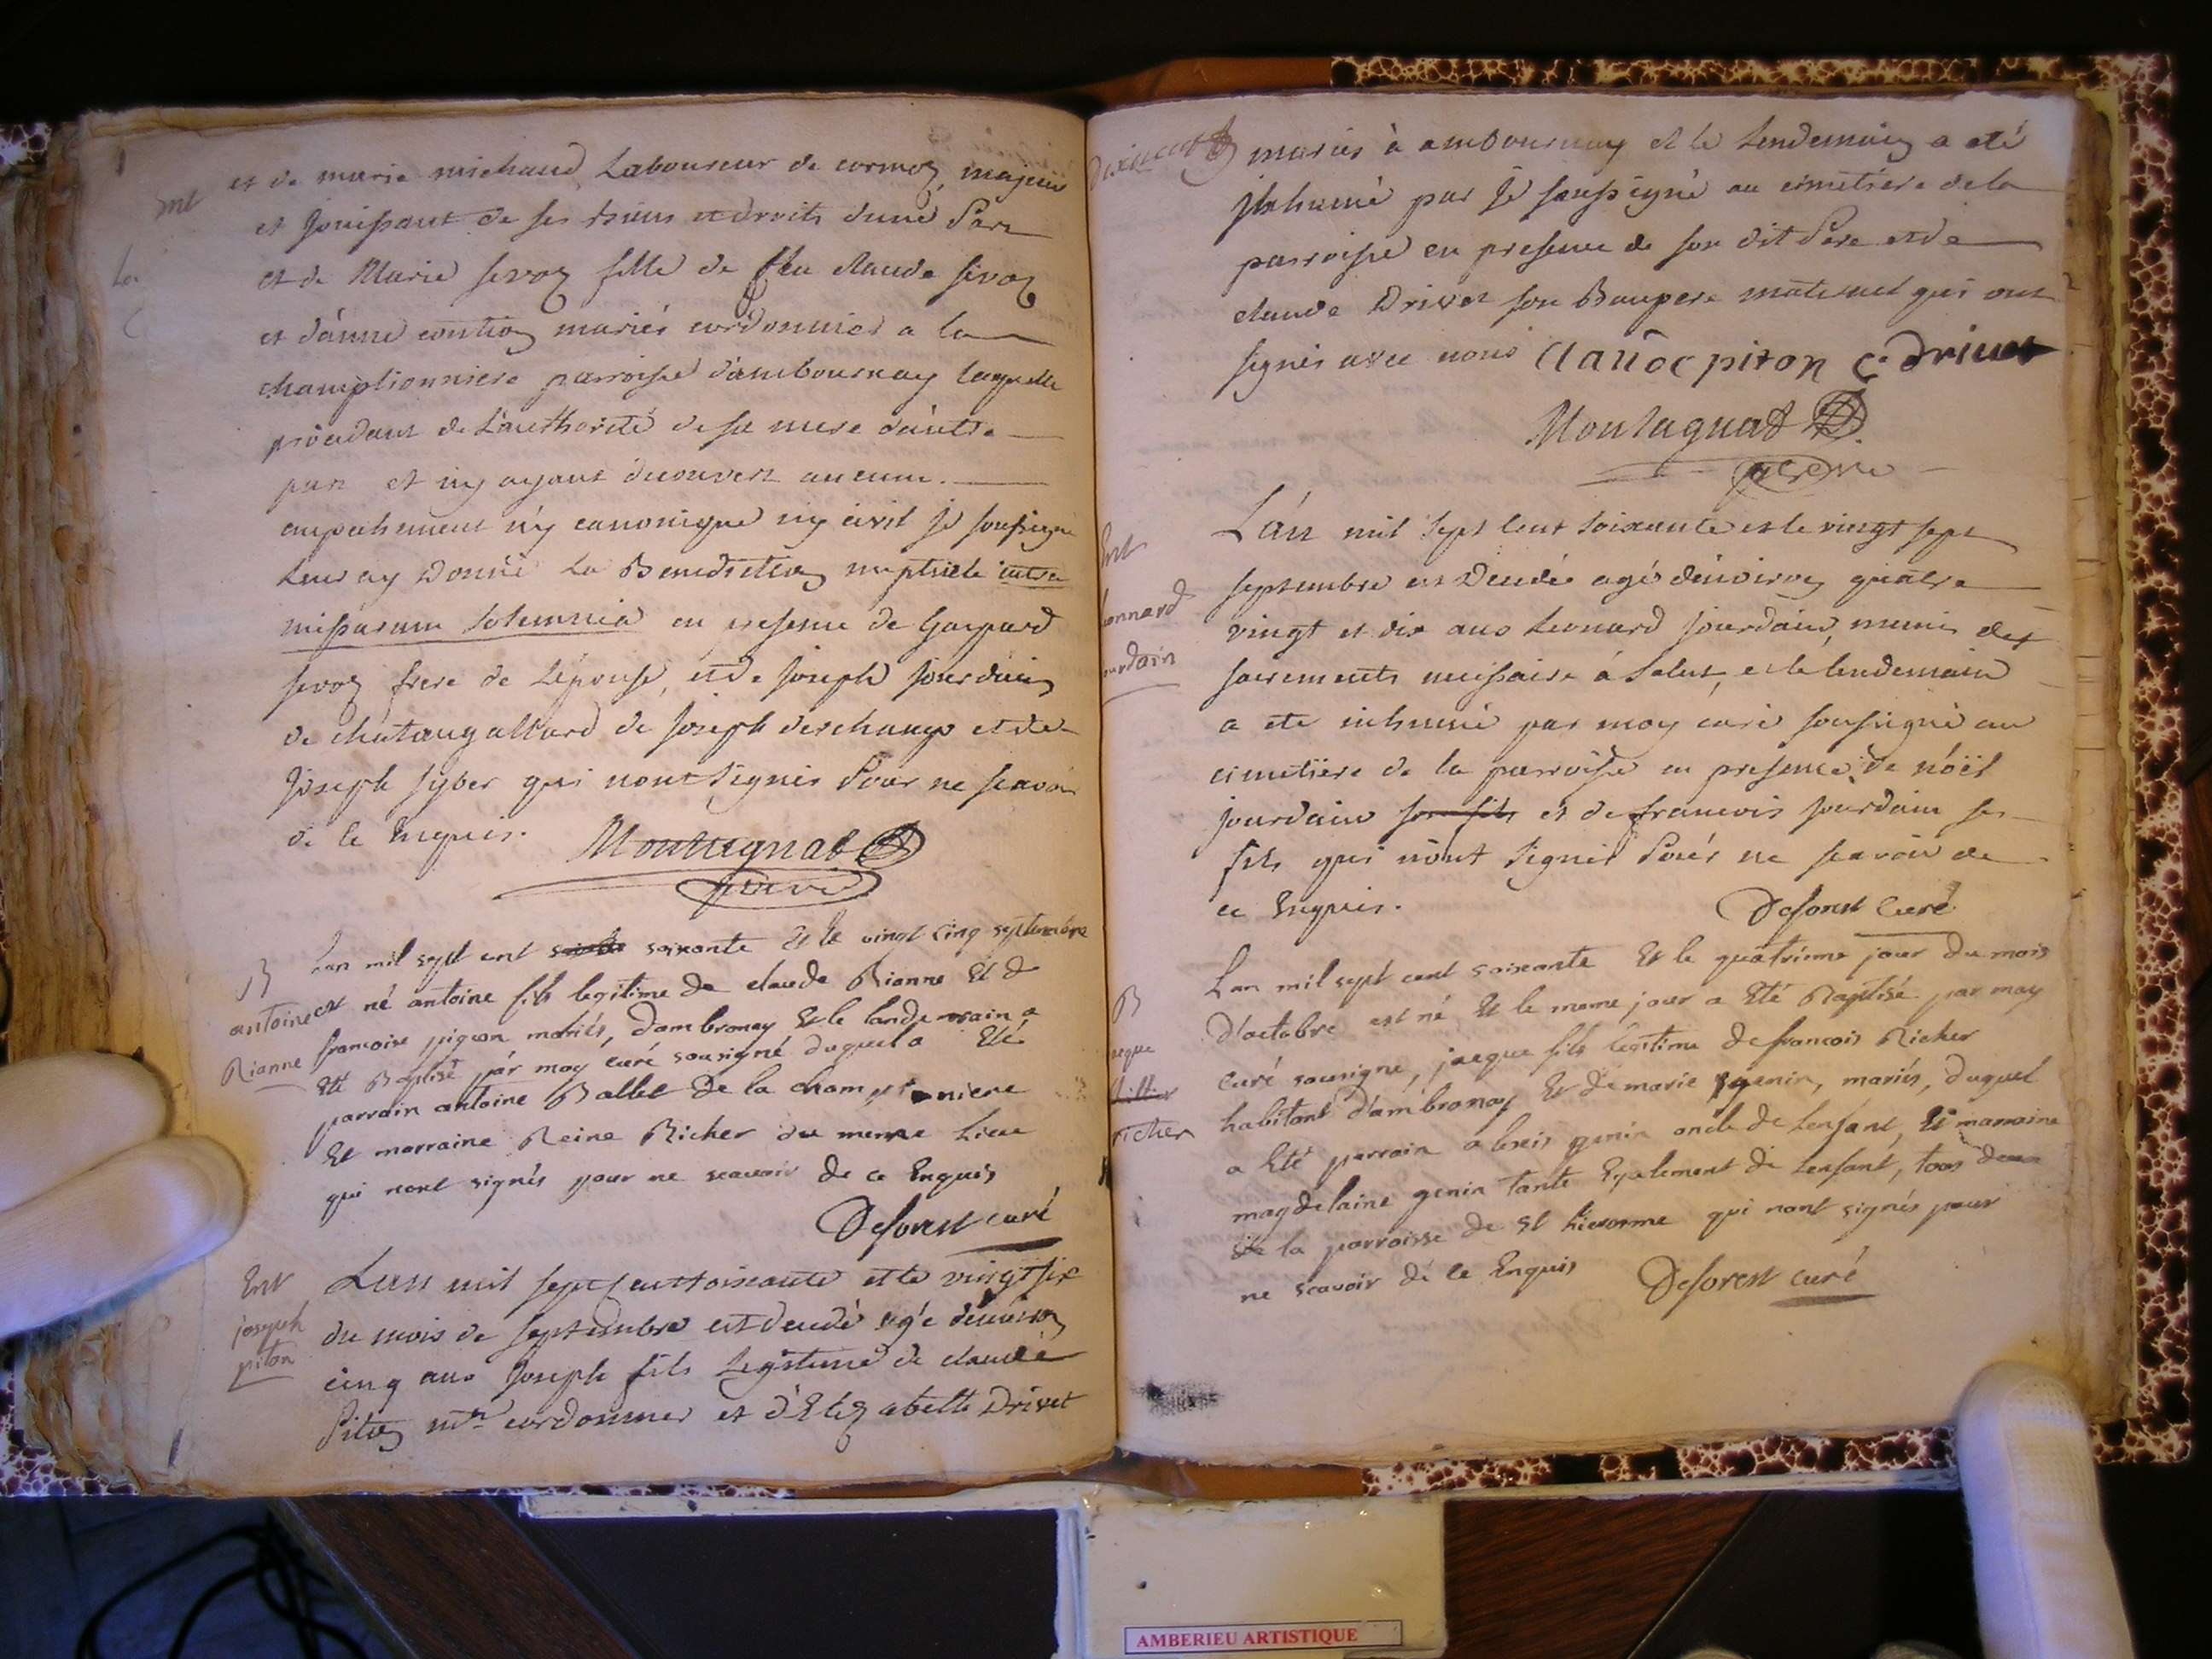 et de marie michaud Laboureur de cormoz, majeur
et Jouissant de ses biens et droits dune Part
et de Marie sevoz fille de feu claude sevoz
et d'anne mariés cordonnier a la
championniere parroisse d'ambournay laquelle
procedant de L'authorité de sa mere d'autre
part et ny ayant decouvert aucun
empechement n'y canonique ny civil je soussigné
Leur ay Donné La Benediction nuptiale intra
missarum solemnia en presence de Gaspard
sevoz frere de L'épouse, et de joseph jourdain
de de joseph deschamps et de
joseph qui nont signés Pour ne scavoir
de ce Enquis. Montagnat
B
antoine
Rianne
Lan mil sept cent soixante Et le vingt cinq septembre
est né antoine fils legitime de claude Rianne Et de
francoise pigeon mariés, d'ambronay Et le landemain a
Eté Baptisé par moy curé sousigné duquel a Eté
parrain antoine Ballet de la championiere
Et marraine Reine Richer du meme Lieu
qui nont signés pour ne scavoir de ce Enquis
Deforest curé
Ent
joseph
piton
Lan mil sept cent soixante et le vingt six
du mois de septembre est decedé agé d'environ
cinq ans joseph fils Legitime de claude
Piton mtre cordonnier et d'Elizabette Drivet
mariés à ambournay et le Lendemain a eté
inhumé par je soussigné au cimetiere de la
parroisse en presence de son dit Pere et de
claude Drivet son Beaupere maternel qui ont
signés avec nous Claude piton C. Drivet
Montagnat
Ent
Leonard
jourdain
L'an mil sept cent soixante et le vingt sept
septembre est Decedé agé d'environ quatre
vingt et dix ans Leonard jourdain, munis des
sacrements necessaire à salut, et le lendemain
a ete inhumé par moy curé soussigné au
cimetiere de la parroisse en presence de nöel
jourdain son fils et de francois jourdain ses
fils qui n'ont signés Pour ne scavoir de
ce Enquis.
Deforest Curé
B
jaeque
Richer
Lan mil sept cent soixante Et le quatrieme jour du mois
d'octobre est né, Et le meme jour a Eté Baptisé par moy
curé sousigne, jaeque fils legitime de francois Richer
habitant d'ambronay Et de marie genin, mariés, duquel
a Eté parrain alexis genin oncle de Lenfant, Et marraine
magdelaine genin tante Egalement de Lenfant, tous deux
de la parroisse de St hierosme qui nont signés pour
ne scavoir de ce Enquis Deforest curé
AMBERIEU ARTISTIQUE